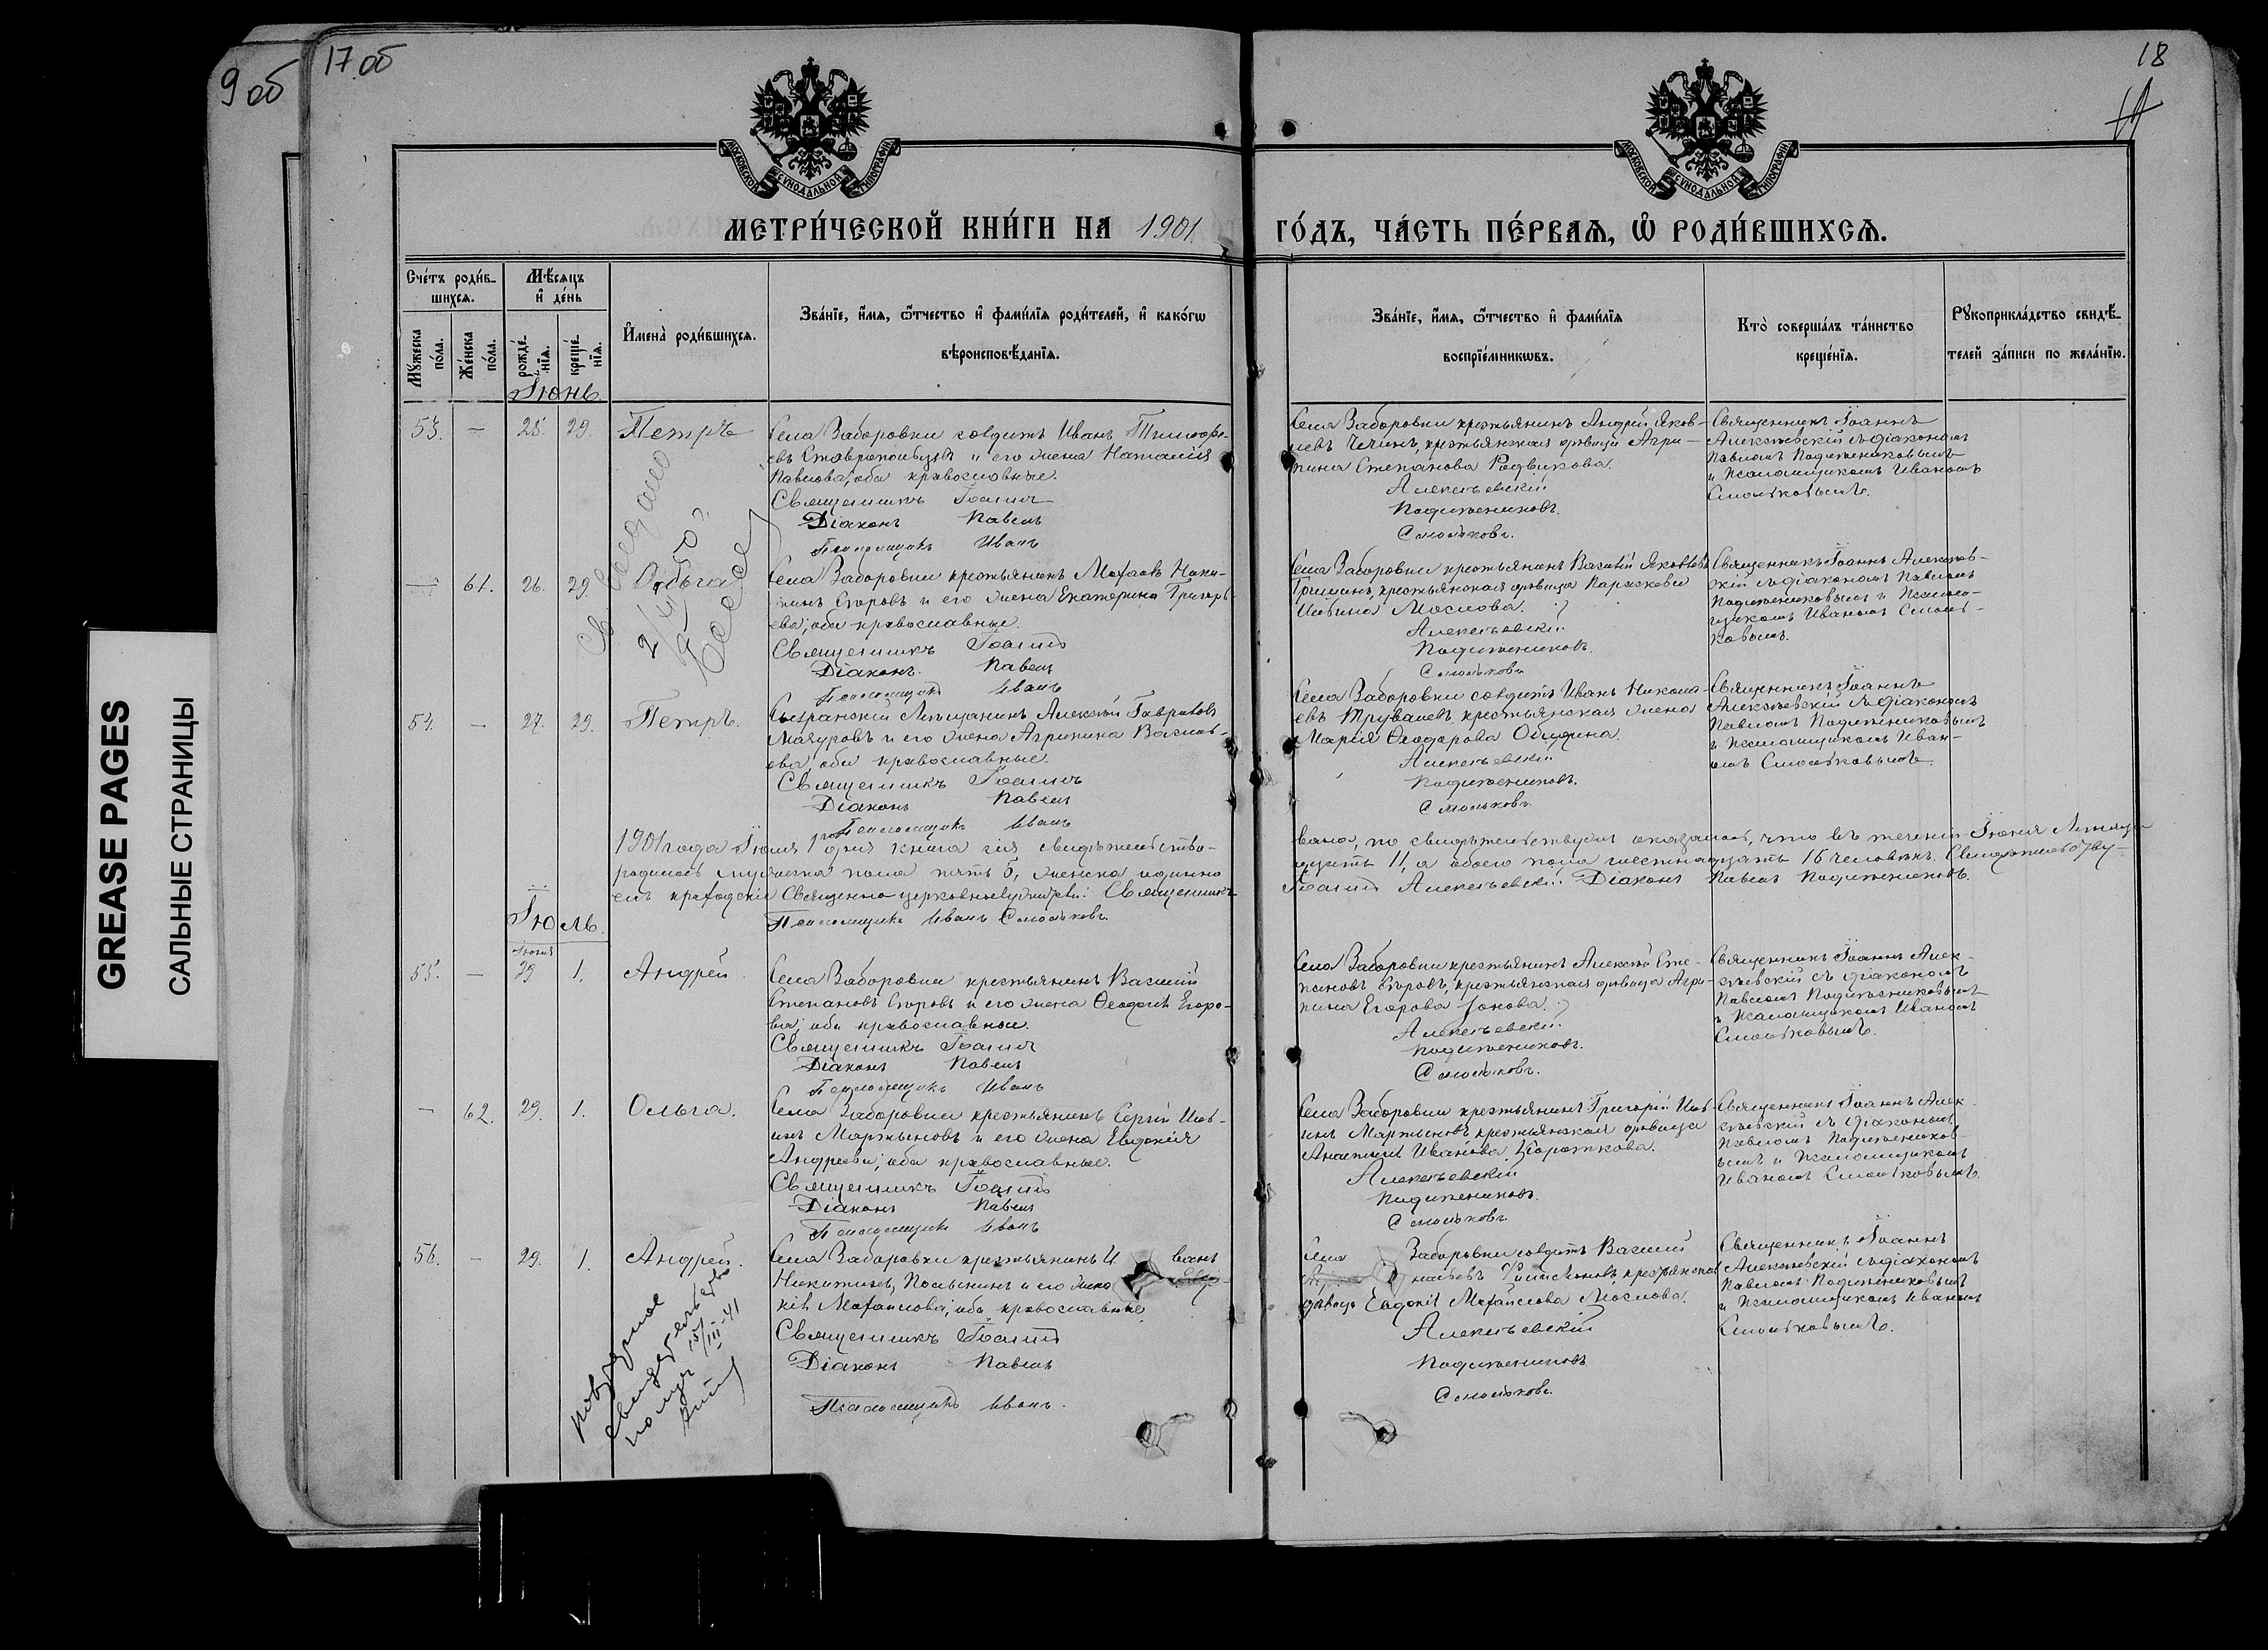 9 об
17 об
18
МОСКОВСКОЙ СѴНОДАЛЬНОЙ ТИПОГРАФІИ
МОСКОВСКОЙ СѴНОДАЛЬНОЙ ТИПОГРАФІИ
МЕТРИ́ЧЕСКОЙ КНИ́ГИ НА 1901. ГО́ДЪ, ЧА́СТЬ ПЕ́РВАѦ, Ѽ РОДИ́ВШИХСѦ.
Сче́тъ роди́в-
шихсѧ.
Мꙋ́жеска по́ла.
Же́нска по́ла.
Мѣ́сѧцъ
и҆ де́нь
рожде́-
нїѧ.
креще́-
нїѧ.
И҆мена̀ роди́вшихсѧ.
Зва́нїе, и҆́мѧ, ѻ҆́тчество и҆ фами́лїѧ роди́телей, и҆ како́гѡ
вѣроисповѣ́данїѧ.
Зва́нїе, и҆́мѧ, ѻ҆́тчество и҆ фами́лїѧ
воспрїе́мникѡвъ.
Кто̀ соверша́лъ та́инство
креще́нїѧ.
Рꙋкоприкла́дство свидѣ́-
телей за́писи по жела́нїю.
Іюнь
53. — 25. 29. Петръ
Села Заборовки солдатъ Иванъ Тимофе-
евъ Ставропольцевъ и его жена Наталія
Павлова, оба православные.
Священникъ Іоаннъ
Діаконъ Павелъ
Псаломщикъ Иванъ
Села Заборовки крестьянинъ Андрей Яков-
левъ Чечинъ, крестьянская дѣвица Агри-
пина Степанова Родвикова.
Алексѣевскій
Подлипениковъ.
Смольковъ.
Священникъ Іоаннъ
Алексѣевскій съ діакономъ
Павломъ
и Псаломщикомъ Иваномъ
Смольковымъ.
— 61. 26. 29. Ольга
Села Заборовки крестьянинъ Михаилъ Ники-
тинъ Егоровъ и его жена Екатерина Григорь-
ева, оба православные.
Священникъ Іоаннъ
Діаконъ Павелъ
Псаломщикъ Иванъ
Села Заборовки крестьянинъ Василій Яковлевъ
Гришинъ, крестьянская дѣвица Параскева
Ильина Маслова.
Алексѣевскій
Смольковъ
Священникъ Іоаннъ Алексѣев-
скій съ діакономъ Павломъ
и Псалом-
щикомъ Иваномъ Смоль-
ковымъ.
54. — 27. 29. Петръ.
Сызранскій Мѣщанинъ Алексѣй Гавриловъ
Мазуровъ и его жена Агрипина Василь-
ева, оба православные.
Священникъ Іоаннъ
Діаконъ Павелъ
Псаломщикъ Иванъ
Села Заборовки солдатъ Иванъ Никола-
евъ Трувалевъ, крестьянская жена
Марія Ѳеодорова
Алексѣевскій
Смольковъ
Священникъ Іоаннъ
Алексѣевскій съ діакономъ
Павломъ
и Псаломщикомъ Иван-
омъ Смольковымъ.
1901 года Іюля 1 дня книга сія свидѣтельство-
вана, по свидѣтельству оказалось, что въ теченіи Іюня Мѣсяца
родилось мужеска пола пять 5, женска одинна-
дцать 11, а обоего пола шестнадцать 16 человѣкъ. Свидѣтельству-
емъ приходскіе Священно церковнослужители: Священникъ
Іоаннъ Алексѣевскій Діаконъ Павелъ
Псаломщикъ Иванъ Смольковъ.
Іюль.
Іюня
55. — 29 1. Андрей
Села Заборовки крестьянинъ Василій
Степановъ Егоровъ и его жена Ѳеодосія Егоро-
ва, оба православные.
Священникъ Іоаннъ
Діаконъ Павелъ
Псаломщикъ Иванъ
Села Заборовки крестьянинъ Алексѣй Сте-
пановъ Егоровъ, крестьянская дѣвица Агри-
пина Егорова Іонова.
Алексѣевскій
Смольковъ.
Священникъ Іоаннъ Алек-
сѣевскій съ діакономъ
Павломъ
и Псаломщикомъ Иваномъ
Смольковымъ.
— 62. 29. 1. Ольга.
Села Заборовки крестьянинъ Сергій Иль-
инъ Мартыновъ и его жена Евдокія
Андреева, оба православные.
Священникъ Іоаннъ
Діаконъ Павелъ
Псаломщикъ Иванъ
Села Заборовки крестьянинъ Григорій Иль-
инъ Мартыновъ, крестьянская дѣвица
Анастасія Иванова Короткова.
Алексѣевскій
Смольковъ.
Священникъ Іоаннъ Алек-
сѣевскій съ діакономъ
Павломъ
и Псаломщикомъ
Иваномъ Смольковымъ.
56. — 29. 1. Андрей.
Села Заборовки крестьянинъ И ванъ
Никитинъ и его жена
кія Михаилова, оба православные
Священникъ Іоаннъ
Діаконъ Павелъ
Псаломщикъ Иванъ.
Села Заборовки солдатъ Василій
крестьянская
дѣвица Евдокія Михаилова Маслова.
Алексѣевскій
Смольковъ.
Священникъ Іоаннъ
Алексѣевскій съ діакономъ
Павломъ
и Псаломщикомъ Иваномъ
Смольковымъ.
повторное
свидетельство
15/III-41
GREASE PAGES
САЛЬНЫЕ СТРАНИЦЫ